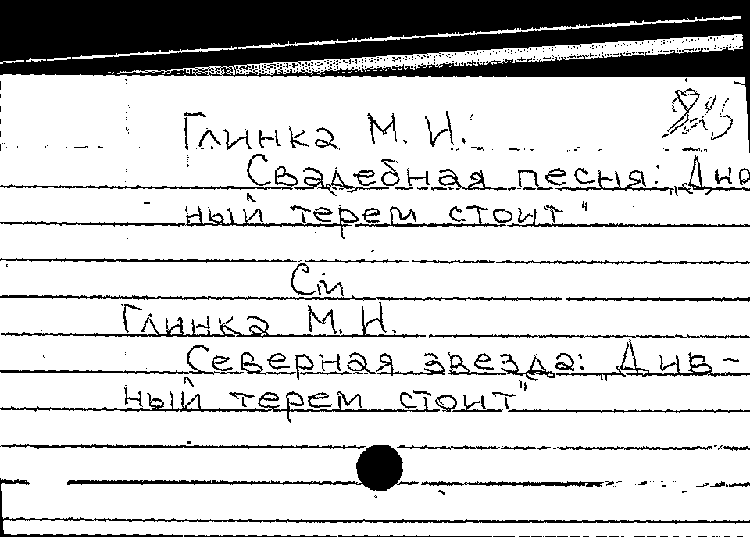 Глинка М. И.
Свадебная песня: „Див
ный терем стоит"
См.
Глинка М. И.
Северная звезда: „Див-
ный терем стоит"